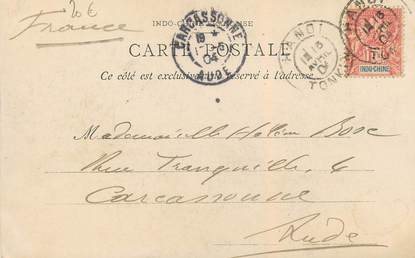 20€
France
INDO-CHINE
CARTE POSTALE
Ce côté est exclusivement réservé à l'adresse
CARCASSONNE
04
AUDE
HANOI
15
AVRIL
04
TONKIN
HANOI
15
04
INDO-CHINE
Mademoiselle Hélène Bosc
Rue Tranquille, 6
Carcassonne
Aude